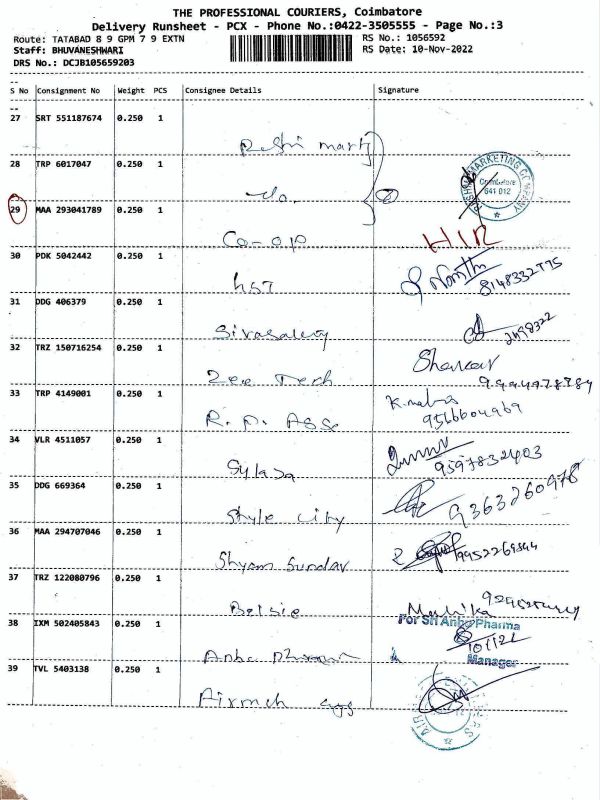 THE PROFESSIONAL COURIERS, Coimbatore
Delivery Runsheet - PCX - Phone No.:0422-3505555 - Page No.:3
Route: TATABAD 8 9 GPM 7 9 EXTN
RS No.: 1056592
Staff: BHUVANESHWARI
RS Date: 10-Nov-2022
DRS No.: DCJB105659203
S No Consignment No Weight PCS Consignee Details Signature
27 SRT 551187674 0.250 1
Rishi mart
28 TRP 6017047 0.250 1
do.
MARKETING COMPANY
Coimbatore
641 012
29 MAA 293041789 0.250 1
Co-op
30 PDK 5042442 0.250 1
8148332775
31 DDG 406379 0.250 1
32 TRZ 150716254 0.250 1
Zee Tech Shankar
33 TRP 4149001 0.250 1
R. P. Asso
9566604969
34 VLR 4511057 0.250 1
9597832403
35 DDG 669364 0.250 1
Style City
9363260978
36 MAA 294707046 0.250 1
Shyam Sundar
37 TRZ 122080796 0.250 1
Belsie
For Sri Anbu Pharma
38 IXM 502405843 0.250 1
Anbu Pharma
Manager
39 TVL 5403138 0.250 1